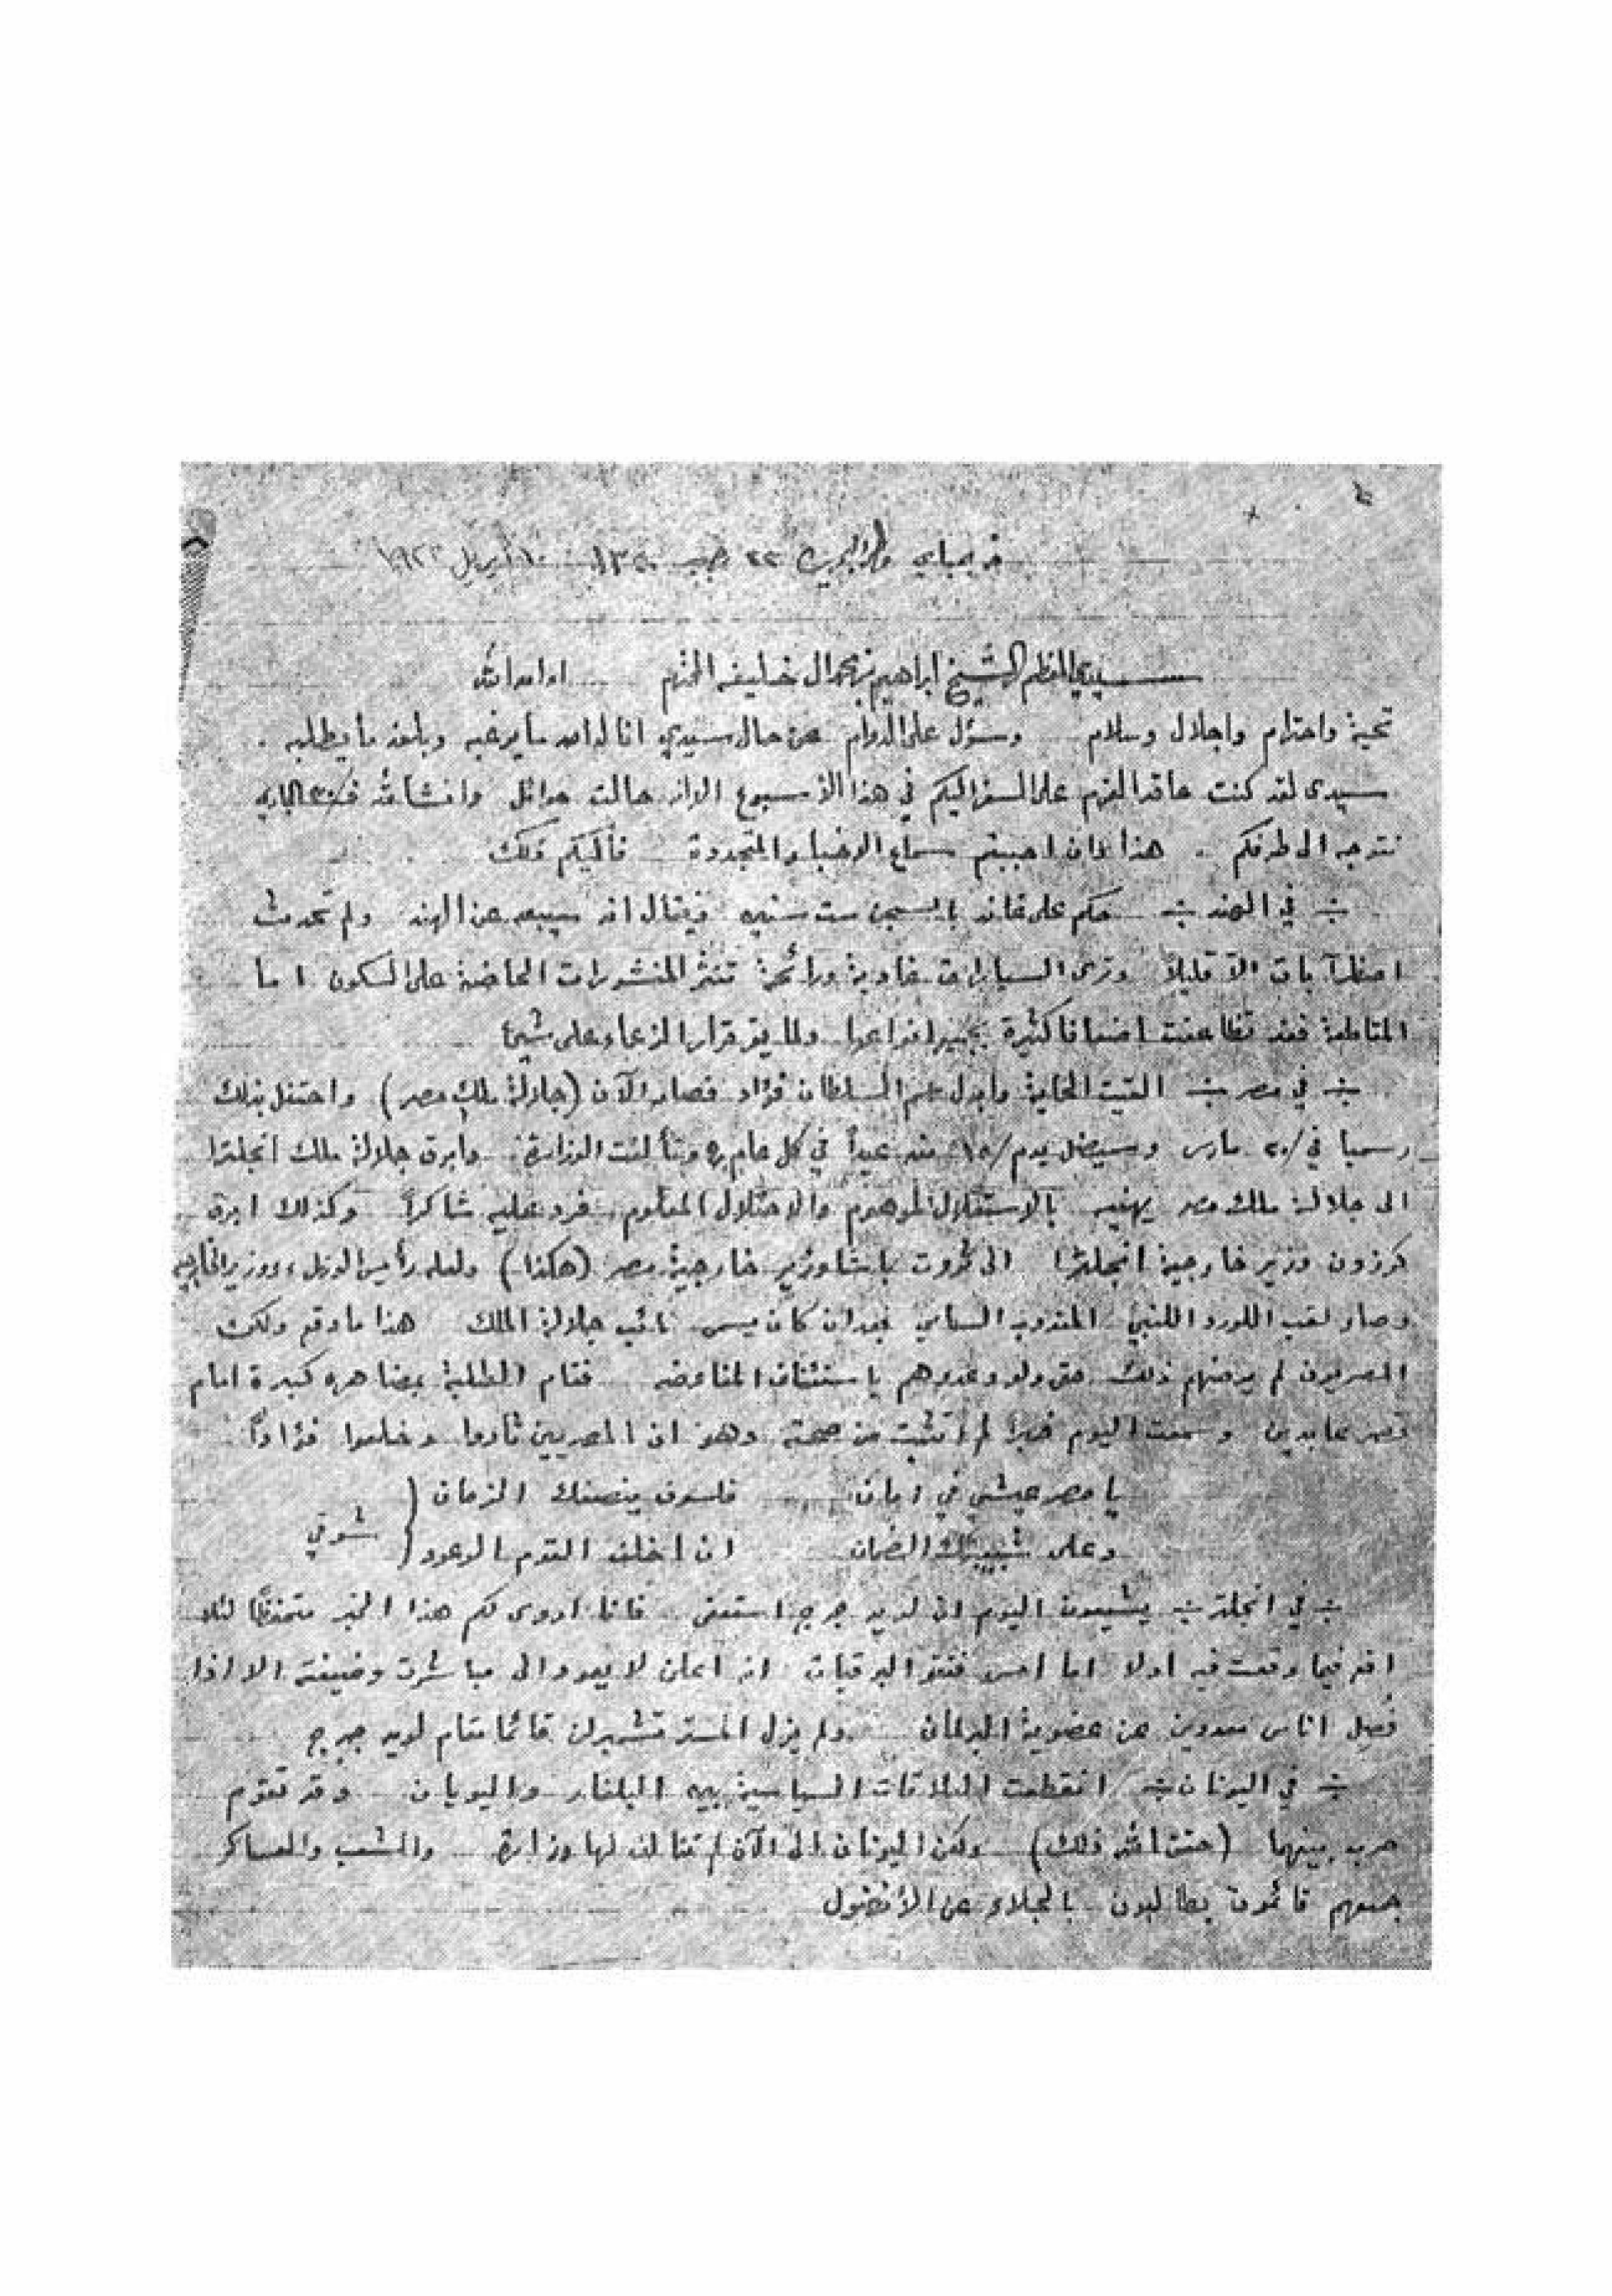 من بمباي الى البحرين ٢٢ رجب ١٣٤٠ ١٠ ابريل ١٩٢٢
سيدي المعظم الشيخ ابراهيم بن محمد ال خليفه المحترم ادامه الله
تحية واحترام واجلال وسلام وسؤل على الدوام عن حال سيدي اناله الله ما يرغبه وبلغه ما يطلبه .
سيدي لقد كنت عاقد العزم على السفر اليكم في هذا الأسبوع الا انه حالت حوائل وانشاء الله في الجاري
نتوجه الى طرفكم . هذا وان احببتم سماع الاخبار المتجددة فأليكم ذلك
في الهند حكم على غاند بالسجن ست سنين ويقال انه سيبعد عن الهند ولم تحدث
اضطرابات الا قليلا وترى السيارات غادية ورائحة تنثر المنشورات الحاضة على السكون اما
المقاطعة فقد تضاعفت اضعافا كثيرة بجميع انواعها ولما يقر قرار الزعماء على شيئ
في مصر القيت الحماية وابدل اسم السلطان فؤاد فصار الآن (جلالة ملك مصر) واحتفل بذلك
رسميا في / ٢٠ مارس وسيضل يوم /١٥ منه عيداً في كل عام وتألفت الوزارة وابرق جلالة ملك انجلترا
الى جلالة ملك مصر يهنيه بالاستقلال الموهوم والاحتلال المعلوم فرد عليه شاكراً وكذلك ابرق
كرزون وزير خارجية انجلترا الى ثروت باشا وزير خارجية مصر (هكذا) ولعله رأيس الوزراء ووزير الخارجيه
وصار لقب اللورد اللنبي المندوب السامي بعد ان كان يسمى نائب جلالة الملك هذا ما وقع ولكن
المصريون لم يرضهم ذلك حتى ولو وعدوهم باستئناف المفاوضه فقام الطلبة بمضاهره كبيرة امام
قصر عابدين وسمعت اليوم خبرا لم اتثبت من صحته وهو ان المصريين ثاروا وخلعوا فؤاداً
يا مصر عيشي في امان فلسوف ينصفك الزمان
وعلى شبيبتك الضمان ان اخلف القوم الوعود } شوقي
في انجلترا يشيعون اليوم ان لويد جرج استعفى فانا اروى لكم هذا الخبر متحفظا لئلا
اقع فيما وقعت فيه اولا اما امس فتقو البرقيات انه اعلن لا يعود الى مباشرت وضيفته الا اذا
فُصل اناس معدوين عن عضوية البرلمان ولم يزل المستر تشمبرلن قائما مقام لويد جرج
في اليونان انقطعت العلاقات السياسية بين البلغار واليونان وقد تقوم
حرب بينهما (حقق الله ذلك) ولكن اليونان الى الآن لم تتالف لها وزارة والشعب والعساكر
جميعهم قائمون يطالبون بالجلاء عن الأنضول